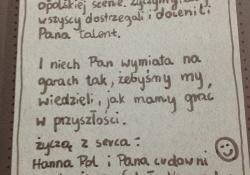 opolskiej scenie. Życzymy, by
wszyscy dostrzegali i docenili
Pana talent.
I niech Pan wymiata na
garach tak, żebyśmy my
wiedzieli, jak mamy grać
w przyszłości.
życzą z serca:
Hanna Pol i Pana cudowni